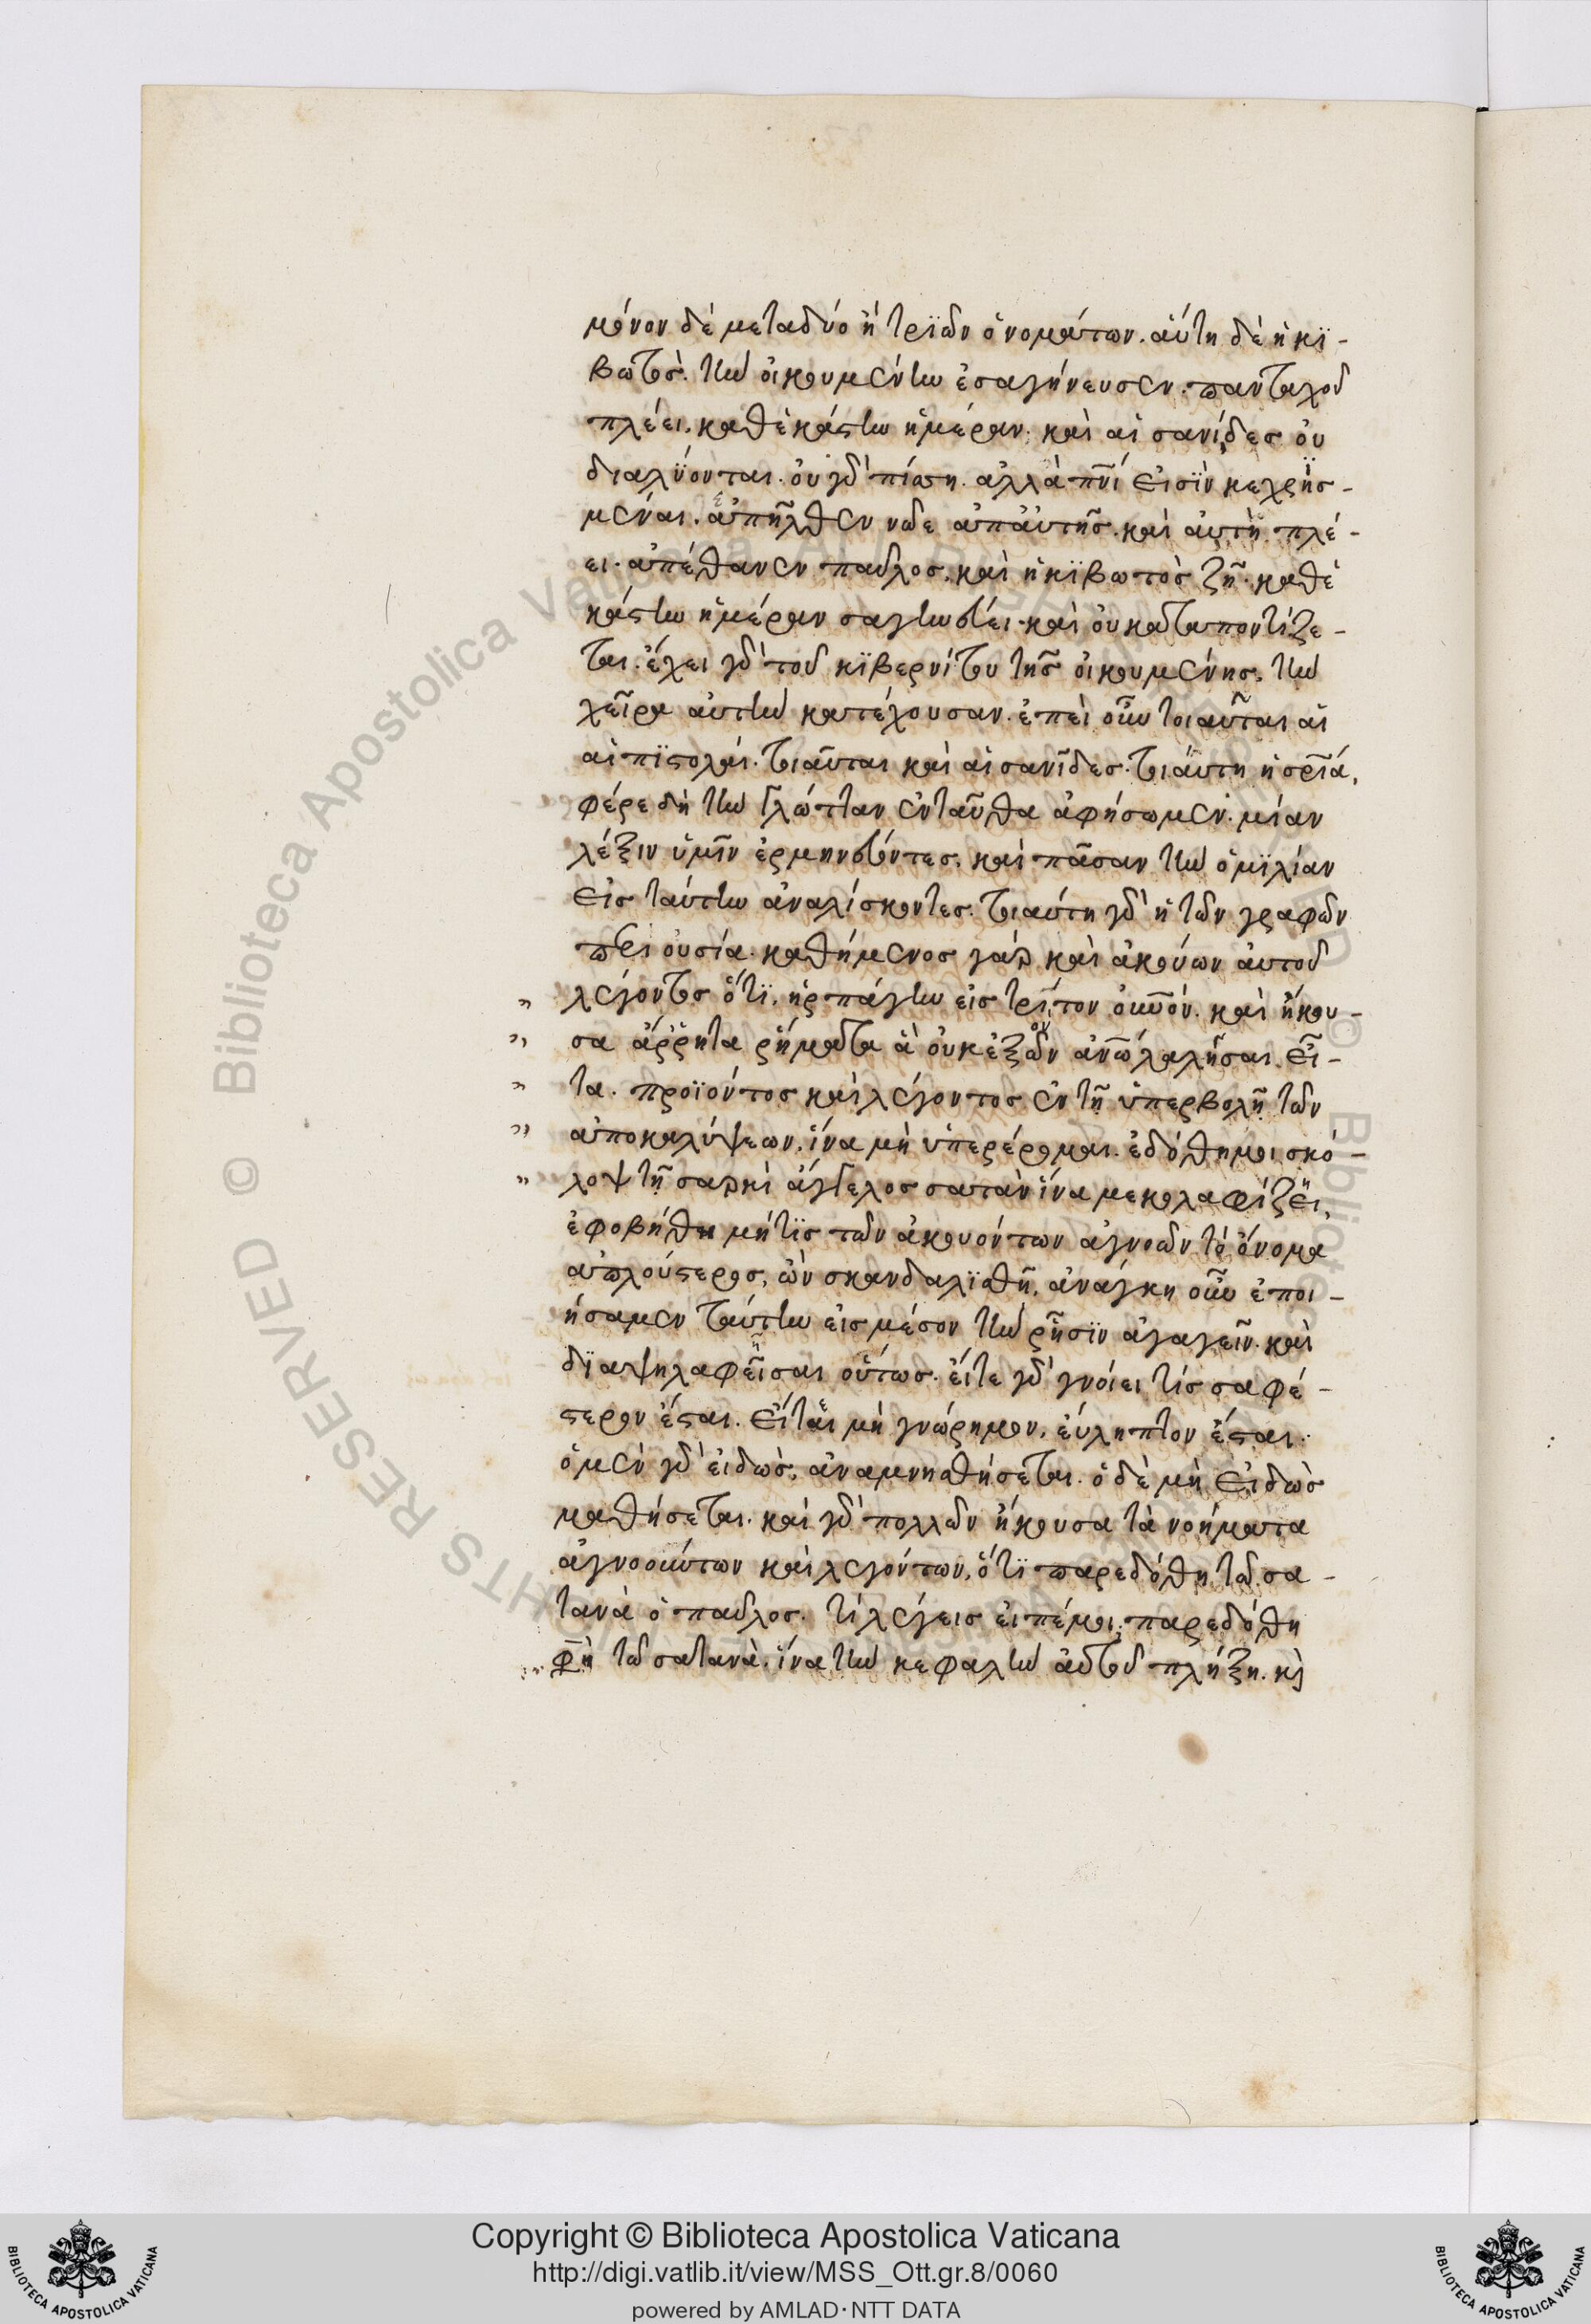 μόνον δὲ μεταδύο ἢ τρϊῶν ὀνομάτων. αὕτη δὲ ἡ κϊ-
βωτὸσ. τὴν οἰκουμένην ἐσαγήνευσεν. πανταχοῦ
πλέει. καθἑκάστην ἡμέραν. καὶ αἱ σανίδεσ οὐ
διαλϋονται. οὐ γὰρ πίσση. ἀλλὰ πνι εἰσὶν κεχρῆσ-
μέναι. ἀπῆλθεν νῶε ἀπαὐτῆσ. καὶ αὐτὴ πλέ-
ει. ἀπέθανεν παῦλοσ, καὶ ἡ κϊβωτὸσ ζῆ. καθἑ
κάστην ἡμέραν σαγηνεύει. καὶ οὐ καταποντίζε-
ται. ἔχει γὰρ τοῦ κϊβερνίτου τῆσ οἰκουμένησ. τὴν
χεῖρα αὐτὴν κατέχουσαν. ἐπεὶ οὖν τοιαῦται αἱ
αἱπϊστολαί. τοιαῦται καὶ αἱ σανῖδεσ. τοιαύτη ἡ σρια,
φέρε δὴ τὴν γλώτταν ἐνταῦθα ἀφήσωμεν. μίαν
λέξιν ὑμῖν ἑρμηνεύοντεσ. καὶ πᾶσαν τὴν ὁμϊλίαν
εἰσ ταύτην ἀναλίσκοντεσ. τοιαύτη γὰρ ἡ τῶν γραφῶν
περιουσία. καθήμενοσ γὰρ καὶ ἀκούων αὐτοῦ
" λέγοντοσ ὅτϊ. ἡρπάγην εἰσ τρίτον οὐνον. καὶ ἤκου-
" σα ἄρρητα ῥήματα ἃ οὐκἐξὸν ἀνω λαλῆσαι. εἶ-
" τα. προϊόντοσ καὶ λέγοντοσ ἐν τῆ ὑπερβολῆ τῶν
" ἀποκαλύψεων. ἵνα μὴ ὑπερέρομαι. ἐδόθημοι σκό-
" λοψ τῆ σαρκὶ ἄγγελοσ σατὰν ἵνα μεκολαφίζει,
ἐφοβήθην μήτϊσ τῶν ἀκουόντων ἀγνοῶν τὸ ὄνομα
ἀπλούστεροσ, ὢν σκανδαλϊσθῆ. ἀνάγκη οὖν ἐποι-
ήσαμεν ταύτην εἰσ μέσον τὴν ῥῆσϊν ἀγαγεῖν. καὶ
δϊαψηλαφεῖσαι οὕτωσ. εἴτε γὰρ γνοίει τίσ σαφέ-
στερον ἔσται. εἴται μὴ γνώρημον. εὔληπτον ἔσται.
ὁμὲν γὰρ εἰδὼσ. ἀναμνησθήσεται. ὁ δὲ μὴ εἰδὼσ
μαθήσεται. καὶ γὰρ πολλῶν ἤκουσα τὰ νοήματα
ἀγνοούντων καὶ λεγόντων. ὅτϊ παρεδόθη τῶ σα-
τανᾶ ὁ παῦλοσ. τί λέγεισ εἰπέμοι. παρεδόθη
φη τῶ σατανὰ. ἵνα τὴν κεφαλὴν αὐτοῦ πλήξη. κὶ
Copyright © Biblioteca Apostolica Vaticana
http://digi.vatlib.it/view/MSS_Ott.gr.8/0060
powered by AMLAD·NTT DATA